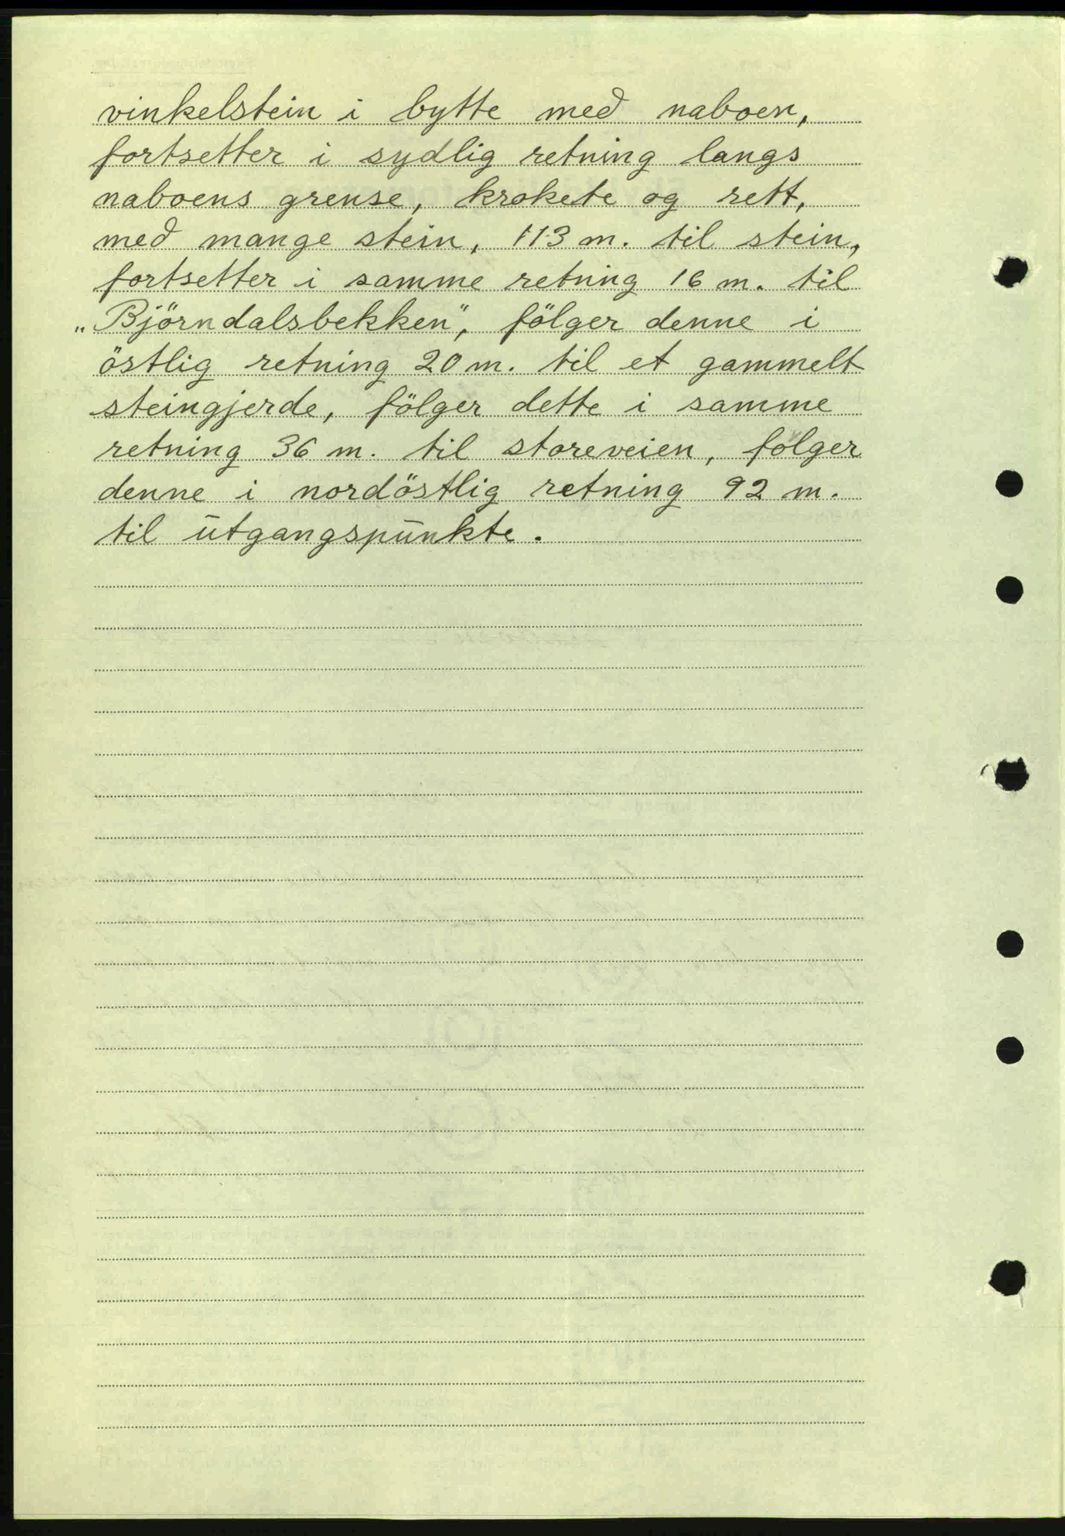 vinkelstein i bytte med naboen,
fortsetter i sydlig retning langs
naboens grense, krokete og rett,
med mange stein, 113 m. til stein,
fortsetter i samme retning 16 m. til
„Björndalsbekken”, fölger denne i
östlig retning 20 m. til et gammelt
steingjerde, fölger dette i samme
retning 36 m. til storeveien, fölger
denne i nordöstlig retning 92 m.
til utgangspunkte.